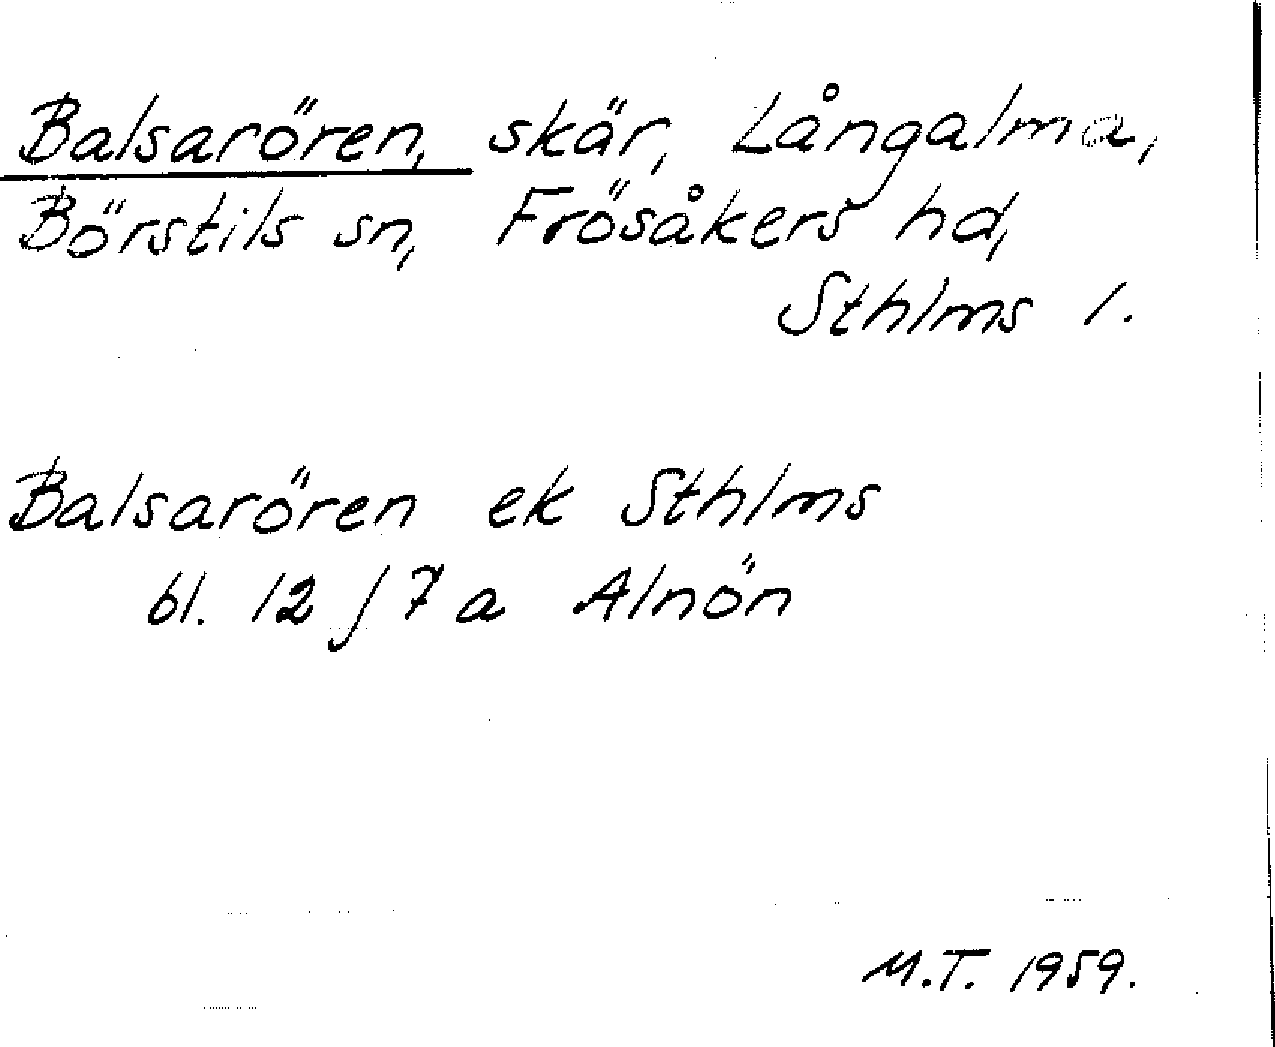 Balsarören, skär, Långalma,
Börstils sn, Frösåkers hd,
Sthlms l.
Balsarören ek Sthlms
bl. 12 J 7 a Alnön
M.T. 1959.